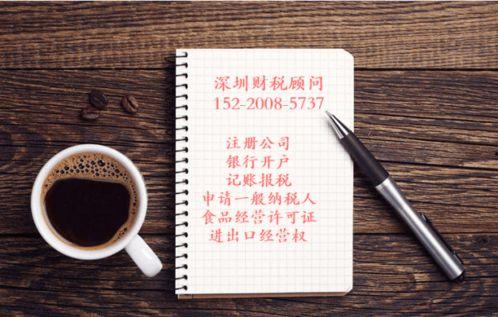 深圳财税顾问
152-2008-5737
注册公司
银行开户
记账报税
申请一般纳税人
食品经营许可证
进出口经营权